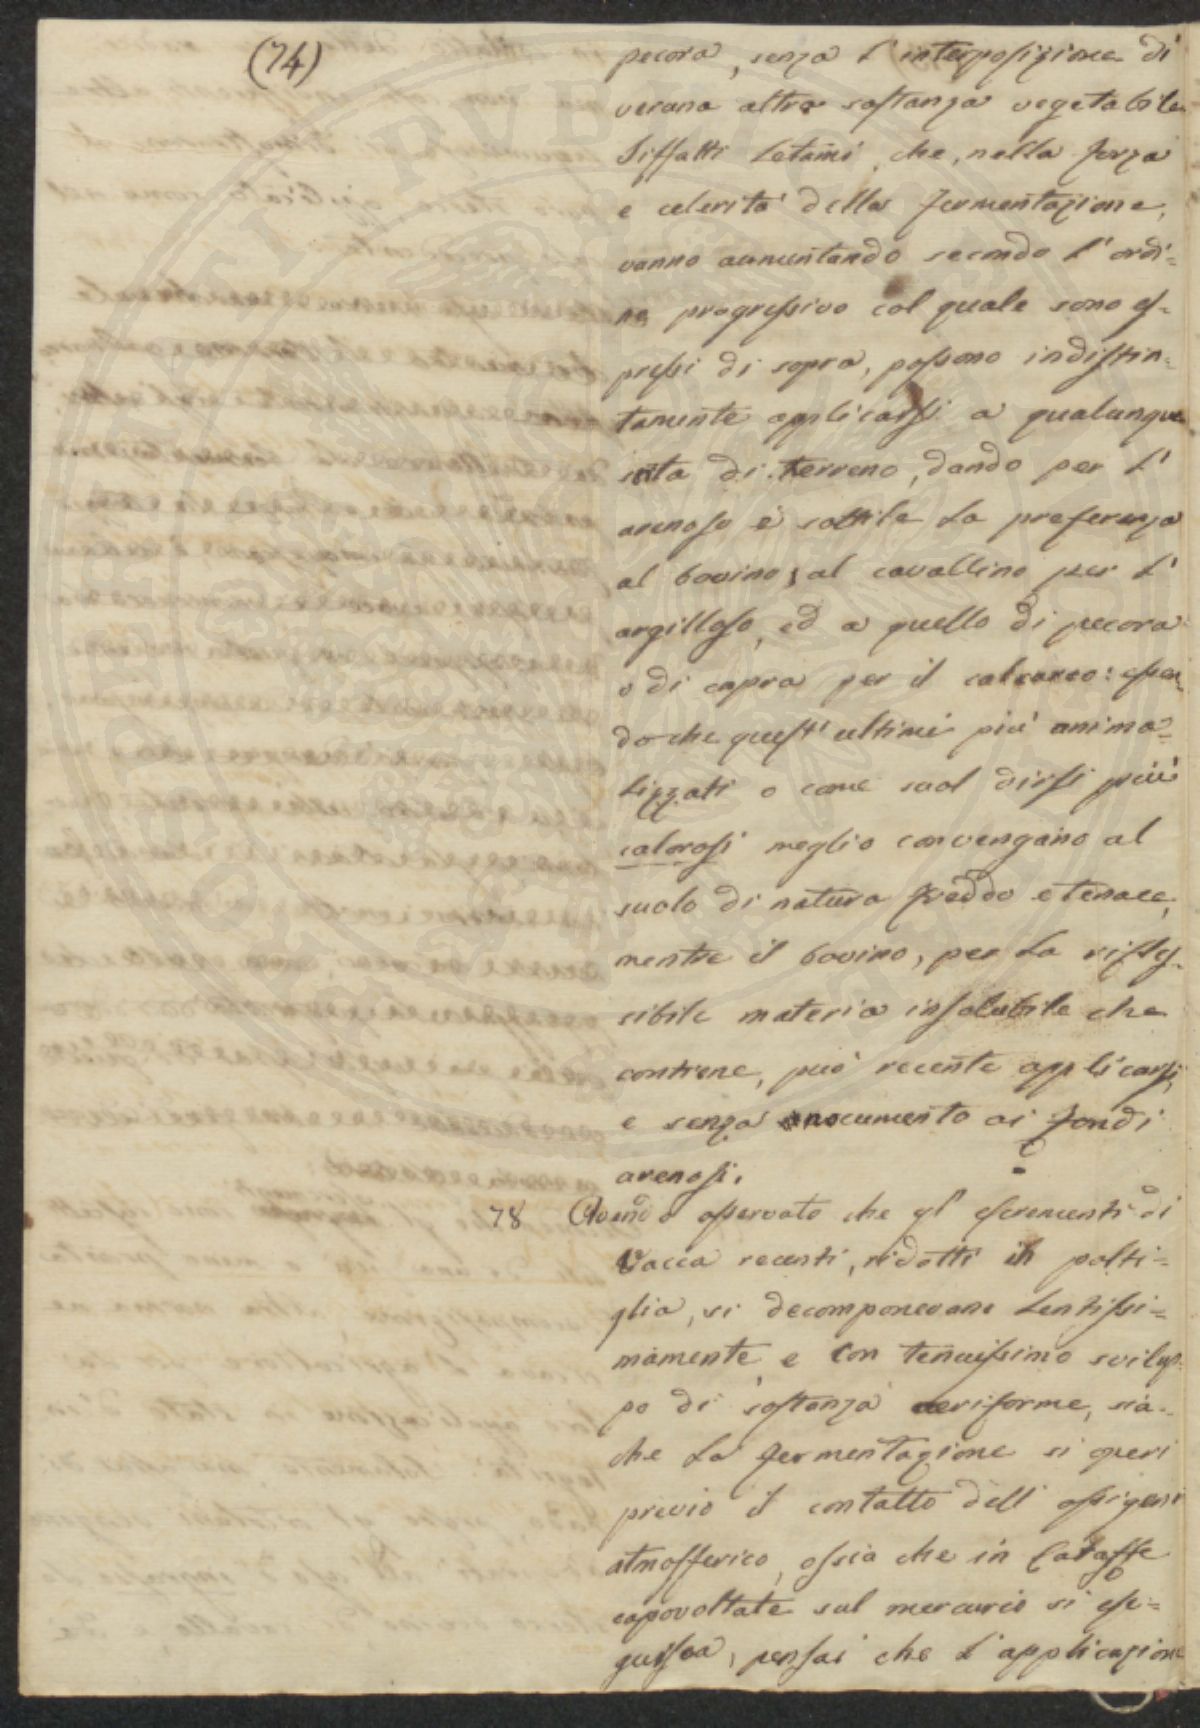 (74)
pecora, senza l'interposizione di
veruna altra sostanza vegetabile.
Siffatti letami, che, nella forza
e celerità della fermentazione,
vanno aumentando secondo l'ordi=
ne progressivo col quale sono es=
pressi di sopra, possono indistin=
tamente applicarsi a qualunque
sorta di terreno, dando per l'
arenoso e sottile la preferenza
al bovino, al cavallino per l'
argilloso, ed a quello di pecora
o di capra per il calcareo: essen=
do che quest'ultimi più anima=
lizzati o come suol dirsi più
calorosi meglio convengano al
suolo di natura freddo e tenace,
mentre il bovino, per la
materia insolubile che
contiene, può recente applicarsi,
e senza nocumento ai fondi
arenosi.
78 Avendo osservato che gl'escrementi di
Vacca recenti, ridotti in polti=
glia, si decomponevano lentissi=
mamente e con tenuissimo svilup=
po di sostanza aeriforme, sia=
che la fermentazione si operi
previo il contatto dell'ossigeno
atmosferico, ossia che in Caraffe
capovoltate sul mercurio si ese=
guisca, pensai che l'applicazione
PUBLICI